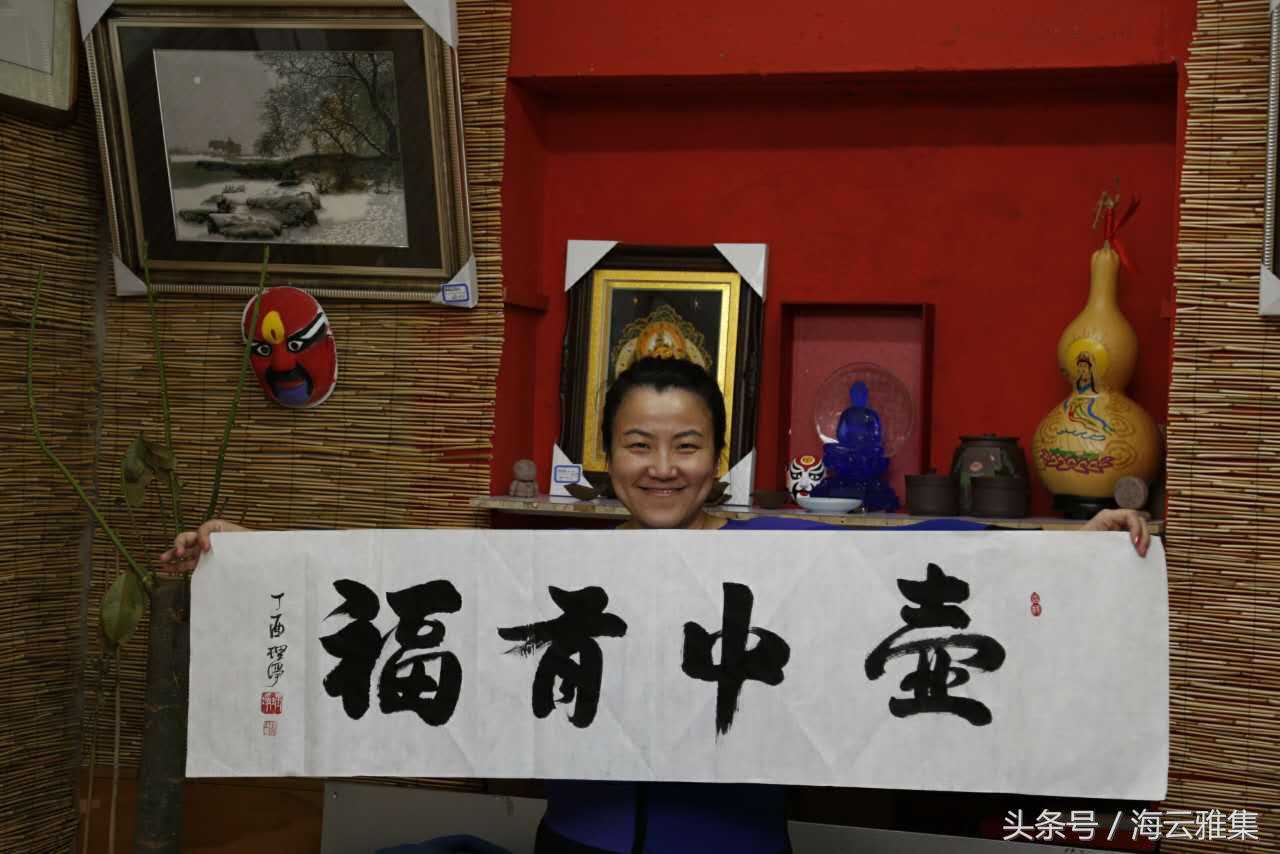 壶中有福
丁酉
头条号 / 海云雅集